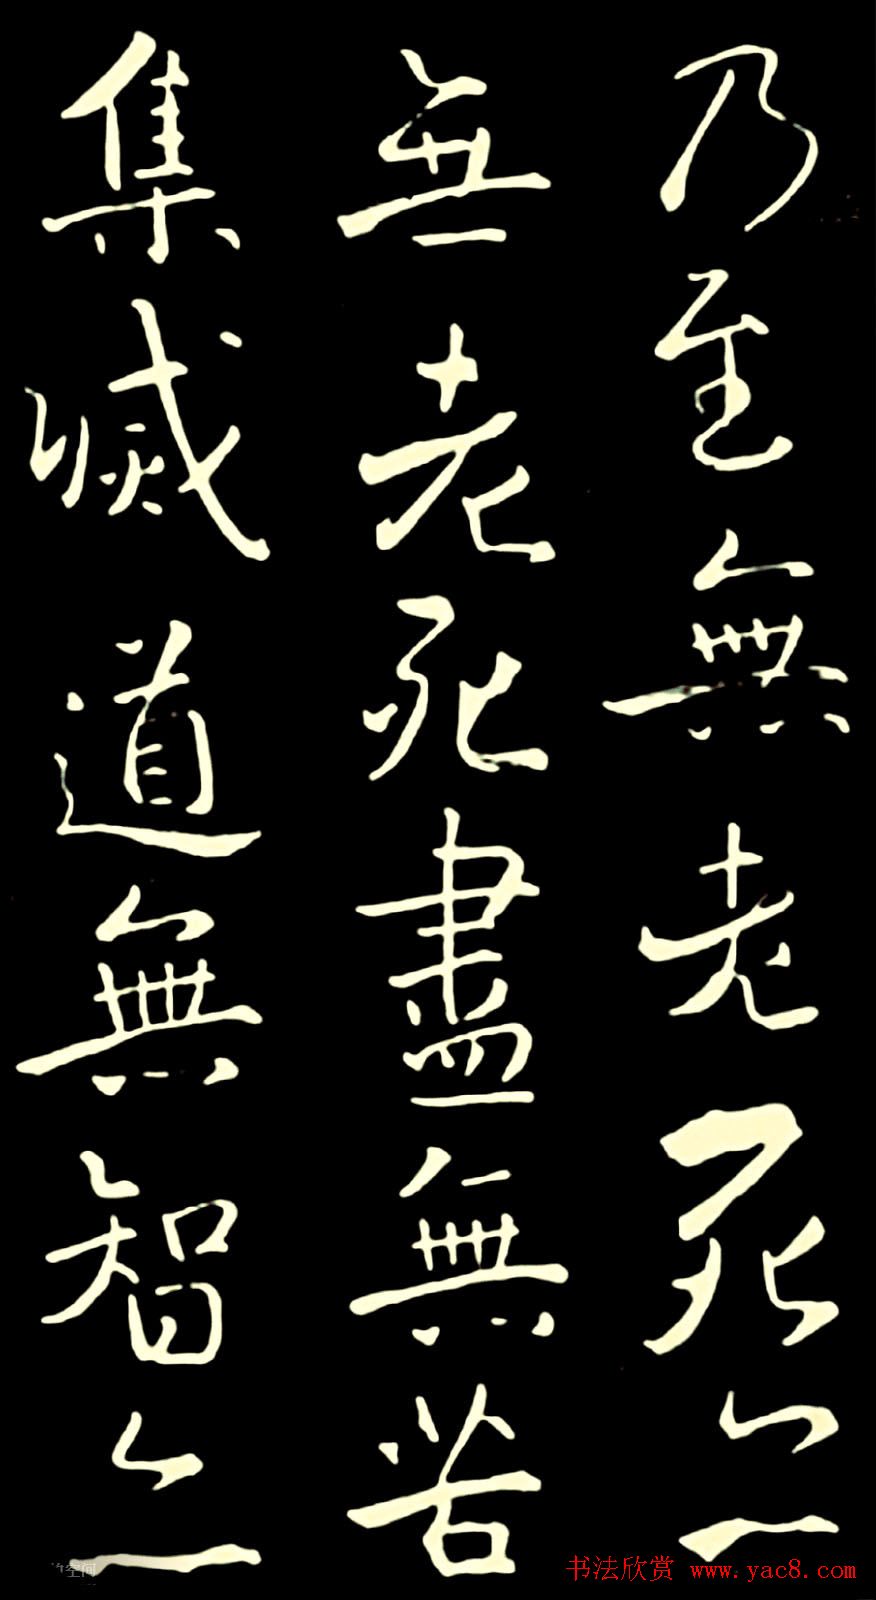 乃至無老死亦
無老死盡無苦
集滅道無智亦
书法欣赏 www.yac8.com
空间